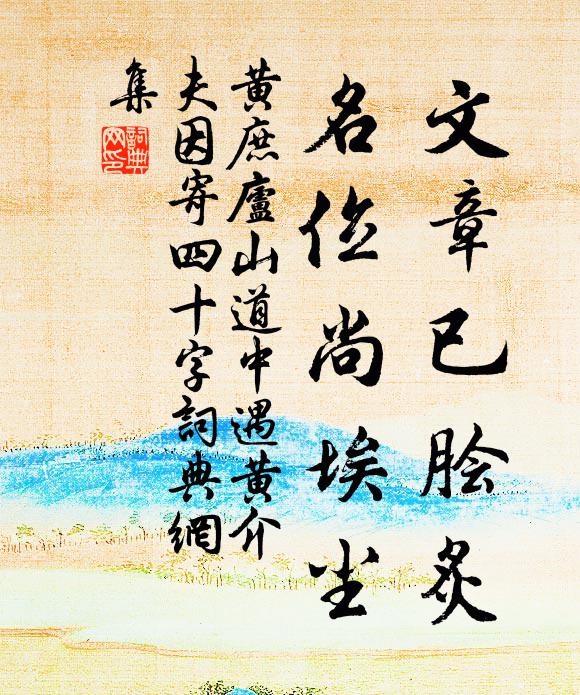 文章已脍炙
名位尚埃尘
黄庶廬山道中遇黄介
夫因寄四十字詞典網
集
詞典
网印